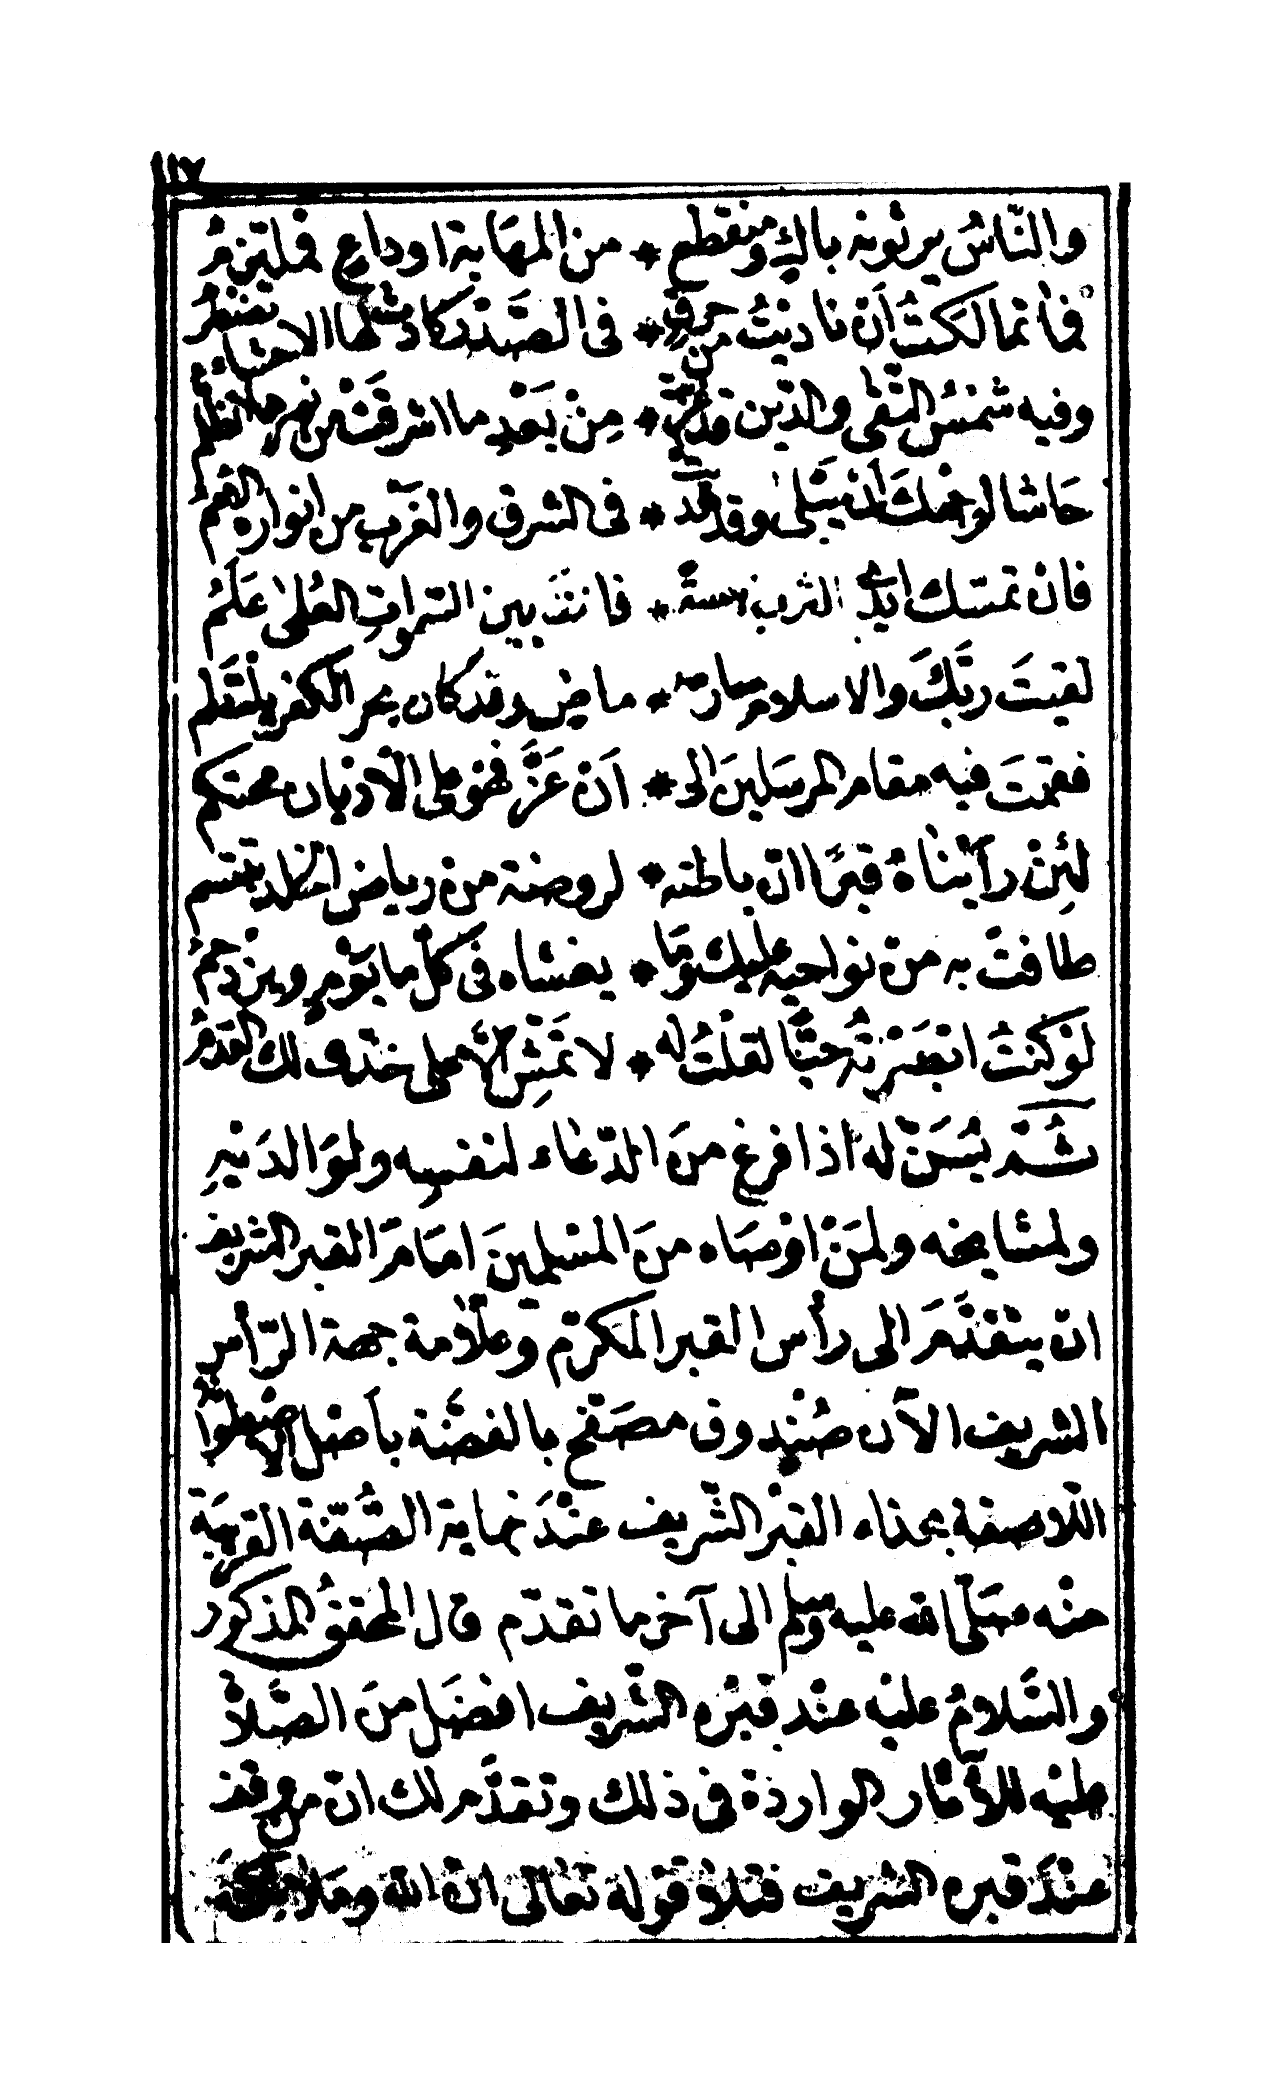 ١١٧
والنّاسُ يرثونه باكٍ ومنقطع * من المهابة او داعٍ فملتزمُ
فما تمالكتُ أنْ ناديتُ من حرق * فى الصَّدر كادت لها الاحشاء تضطرمُ
وفيه شمسُ التّقى والدّين قد غربت * مِنْ بَعْدِ ما اشرقتْ من نورها الظلم
حَاشا لوجهك أنْ يَبْلىٰ وقد * فى الشرق والغرْب من انواره الظلم
فانْ تمسّك أيدى الترب لامسةً * فانت بين السّمٰواتِ العُلىٰ عَلَمُ
لقيتَ ربّكَ والاسلام صارمه * ماضٍ وقد كان بحر الكفر يلتطم
فقمتَ فيه مقام المرسَلينَ الى * اَنْ عَزَّ فهْو على الْأدْيان محتكم
لَئِنْ رأيْناهُ قبرًا انّ باطنه * لروضة منْ رياض الخلد تبتسم
طافتْ به منْ نواحيه ملائكة * يغشاه فى كلّ ما يوْمٍ وتزدحمُ
لوْ كنتُ ابْصَرْتُه حيًّا لقلْتُ له * لا تمْشِ إلّا على خدّى لك القدَمُ
ثُـمَّ يُسَنّ له اذا فرغ منَ الدّعاء لنفسِه ولوَالدَيْهِ
ولمشايخه ولمَنْ اوْصَاه منَ المسْلمينَ امَامَ القبر الشريف
انْ يتقدّمَ الى رأس القبر المكرّم وعلامة جهة الرّأس
الشريف الآن صُنْدوق مصَفّح بالفضّة بأصْل الأسطوانة
اللّاصقة بحذاء القبْر الشّريف عنْدَ نهاية الصُّفّة القريبَة
منْه صَلّى الله عليه وسلم الى آخر ما تقدّم قال المحققُ المذكور
والسَّلامُ عليْه عنْد قبْره الشّريف افضَل منَ الصَّلاة
عليْه للآثار الواردة فى ذلك وتقدَّم لك انّ من وقف
عنْدَ قبره الشريف فتلا قوْله تعالى انّ الله وملائكته